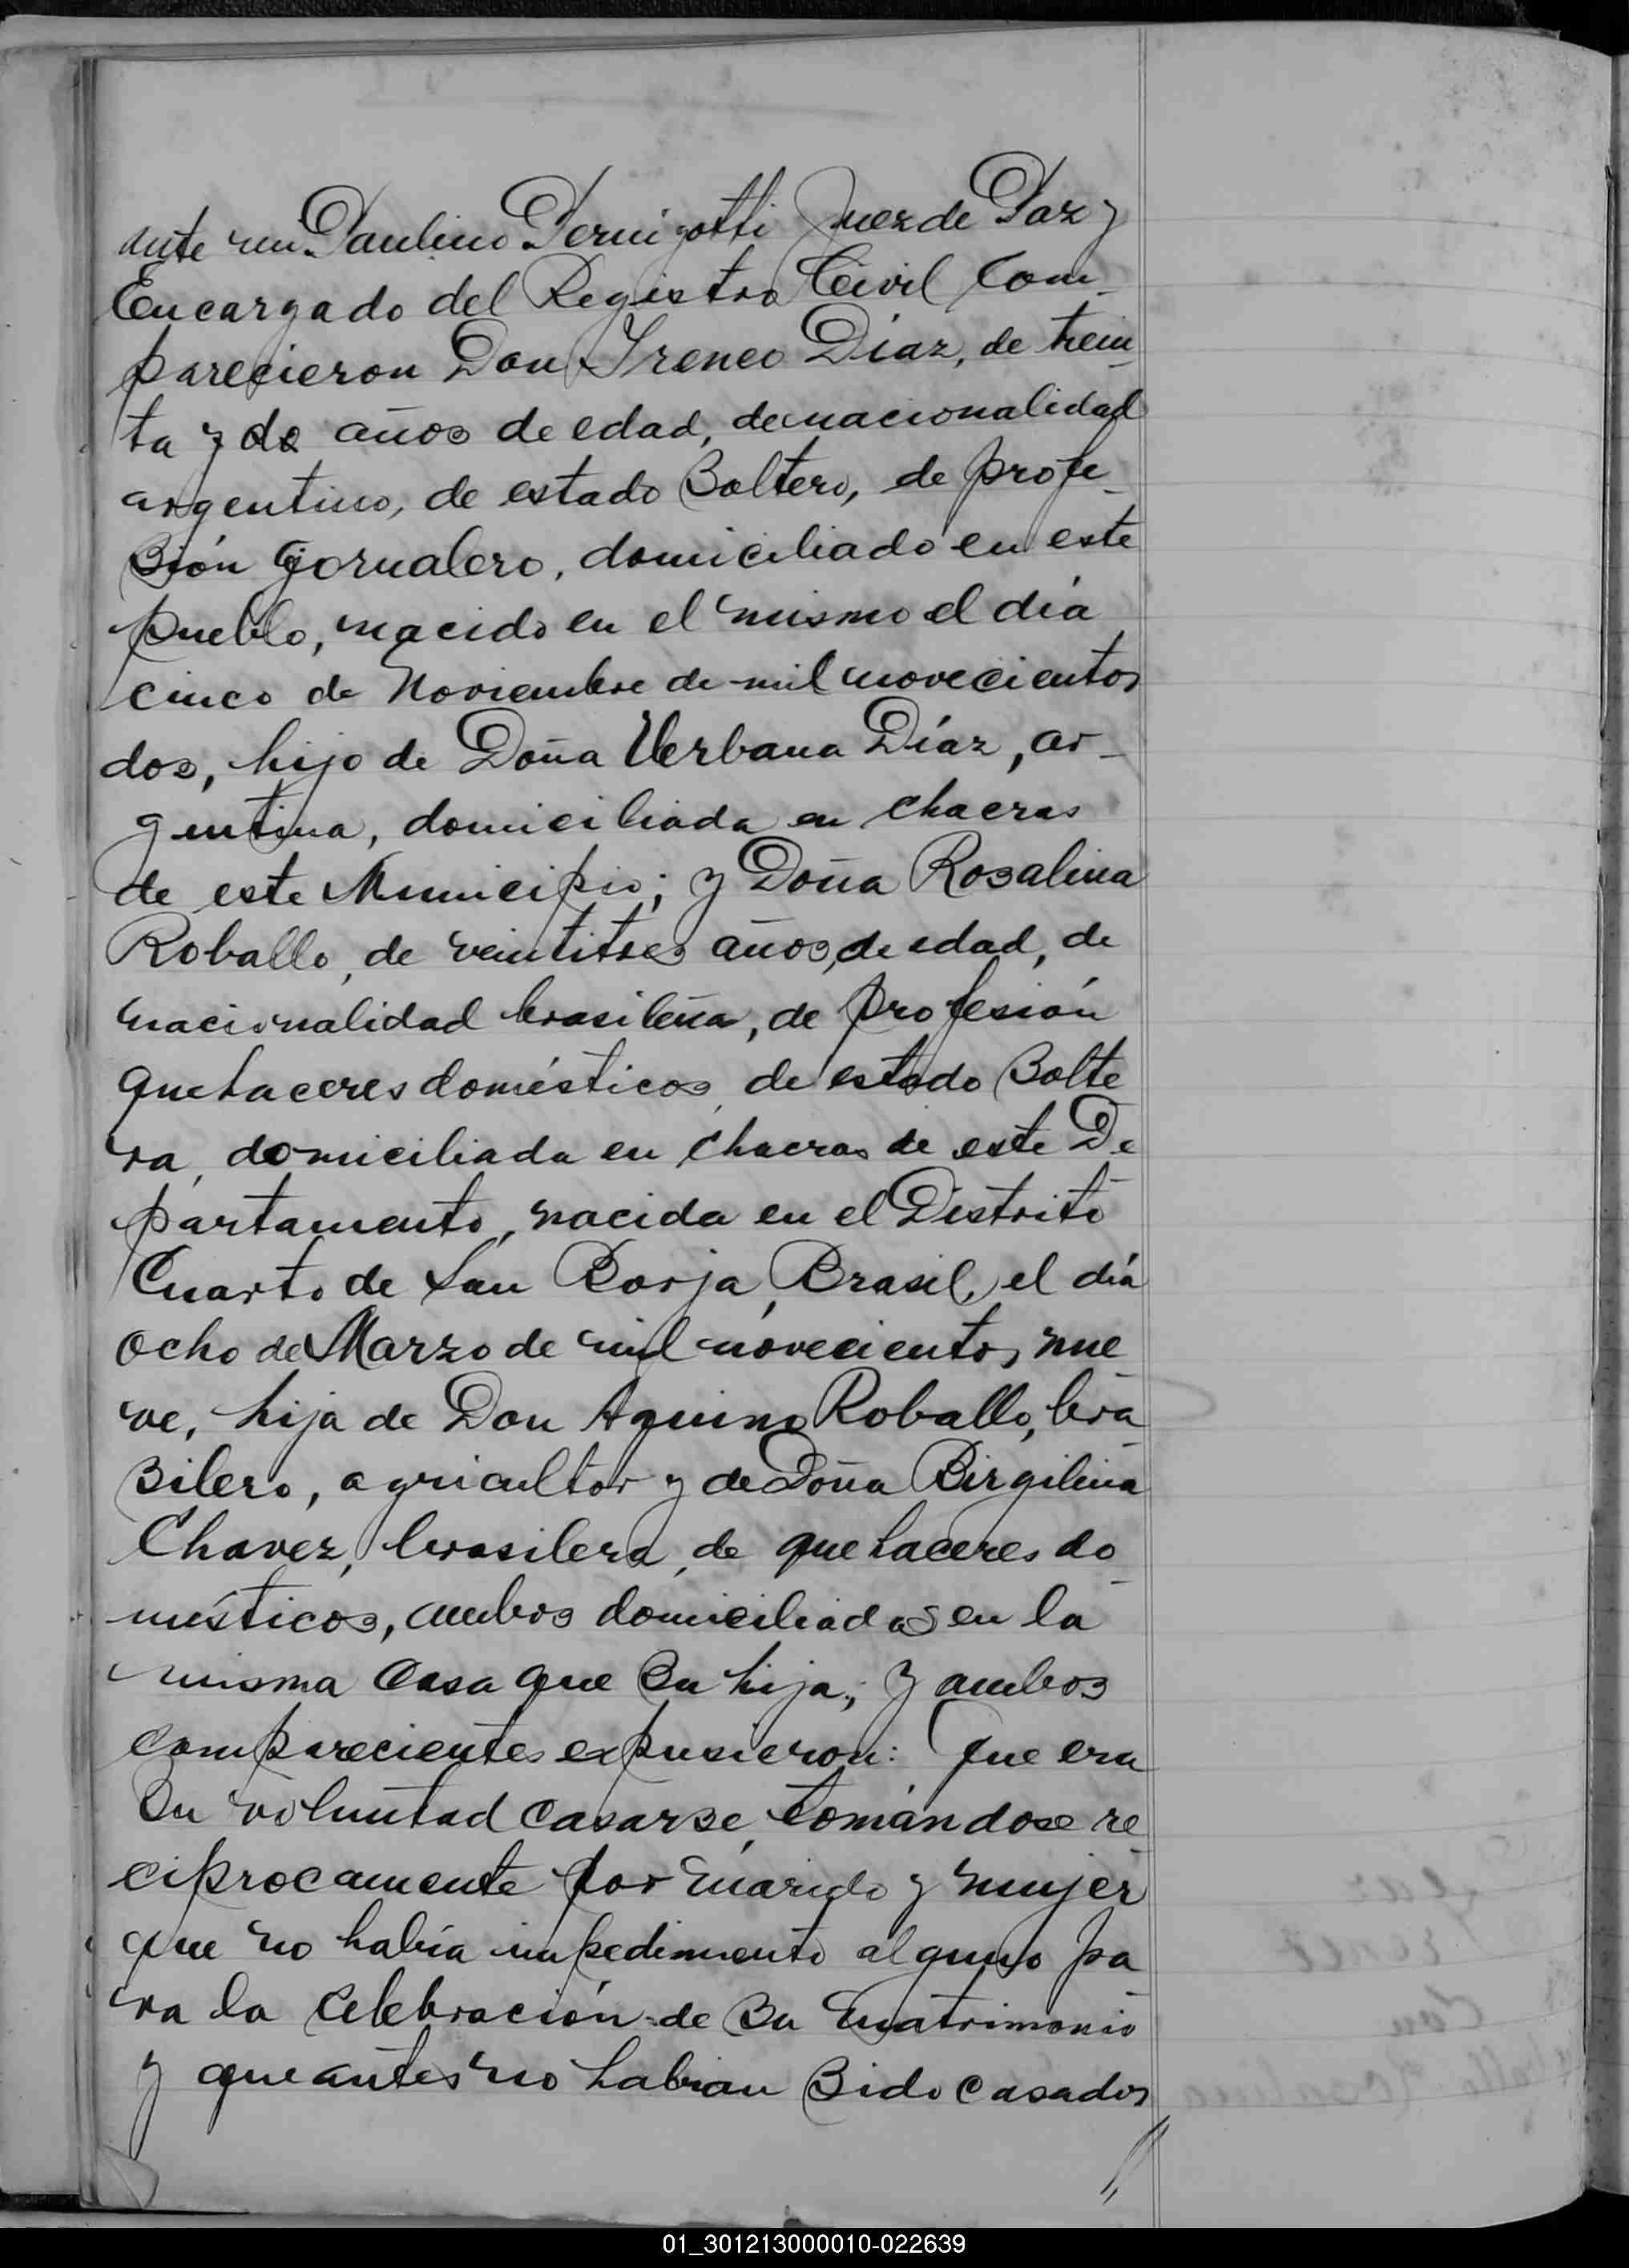 ante mi Paulino Pernigotti Juez de Paz y
Encargado del Registro Civil Com-
parecieron Don Ireneo Díaz, de trein-
ta y do años de edad, de nacionalidad
argentino, de estado Soltero, de profe-
sión jornalero, domiciliado en este
pueblo, nacido en el mismo el día
cinco de Noviembre de mil novecientos
dos, hijo de Doña Urbana Díaz, ar-
gentina, domiciliada en chacras
de este Municipio; y Doña Rosalina
Roballo, de veintitres años, de edad, de
nacionalidad brasileña, de profesión
quehaceres domésticos, de estado Solte
ra, domiciliada en chacras de este De-
partamento, nacida en el Distrito
Cuarto de San Borja, Brasil, el día
ocho de Marzo de mil novecientos nue-
ve, hija de Don Aquino Roballo, bra-
silero, agricultor y de Doña Birgilina
Chavez, brasilera, de quehaceres do-
mésticos, ambos domiciliados en la
misma casa que su hija; y ambos
comparecientes expusieron: Que era
su voluntad casarse, tomándose re-
ciprocamente por marido y mujer
que no había impedimento alguno pa-
ra la celebración de su matrimonio
y que antes no habian sido casados
//
01_301213000010-022639